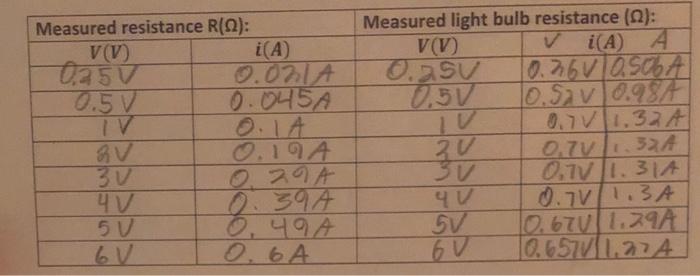 Measured resistance R(Ω): Measured light bulb resistance (Ω):
V(V) i(A) V(V) V i(A) A
0.25V 0.021A 0.25V 0.26V 0.506A
0.5V 0.045A 0.5V 0.52V 0.98A
1V 0.1A 1V 0.7V 1.32A
2V 0.19A 2V 0.7V 1.32A
3V 0.29A 3V 0.7V 1.31A
4V 0.39A 4V 0.7V 1.3A
5V 0.49A 5V 0.67V 1.29A
6V 0.6A 6V 0.657V 1.27A